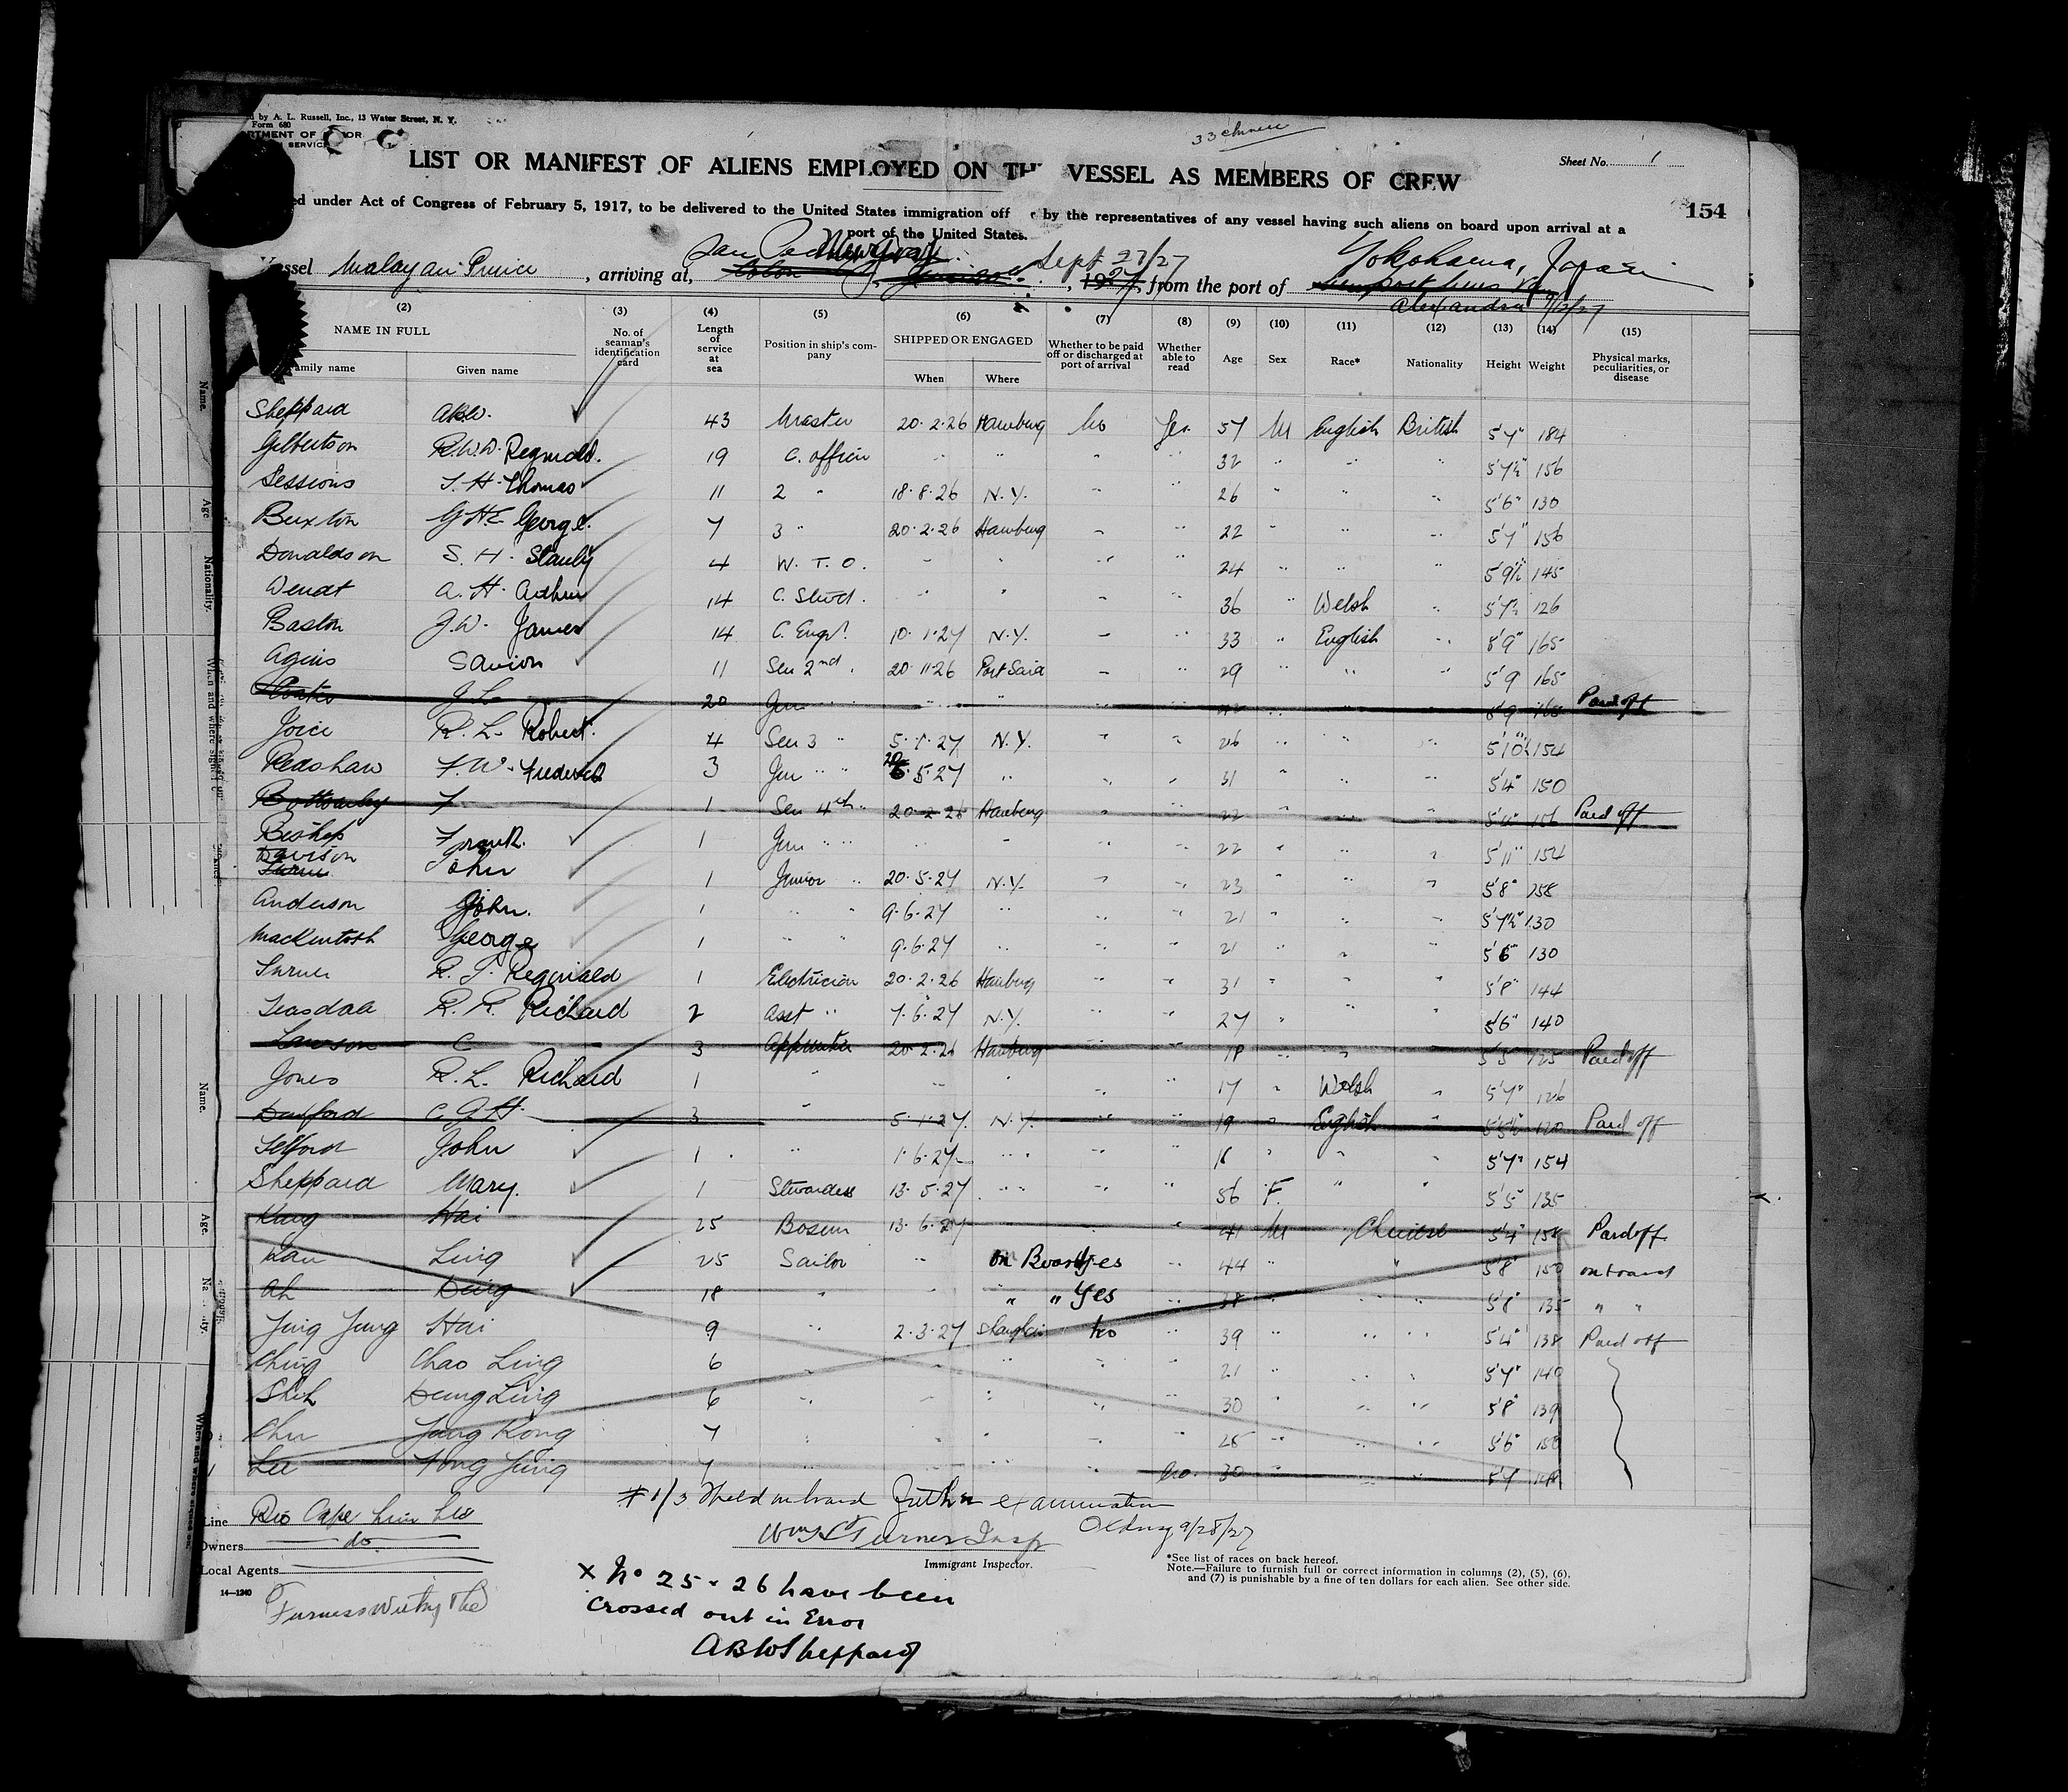 d by A. L. Russell, Inc., 13 Water Street, N. Y.
Form 680
SERVICE
33 chinese
Sheet No. 1
LIST OR MANIFEST OF ALIENS EMPLOYED ON TH VESSEL AS MEMBERS OF CREW
154
ed under Act of Congress of February 5, 1917, to be delivered to the United States immigration off by the representatives of any vessel having such aliens on board upon arrival at a
port of the United States.
Vessel Malayan Prince, arriving at, San Colon New York Sept 27/27, 1927, from the port of Yokohama, Japan
Newport News Va
Alexandria 9/2/27
(2) (3) (4) (5) (6) (7) (8) (9) (10) (11) (12) (13) (14) (15)
NAME IN FULL
Family name Given name
No. of seaman's identification card
Length of service at sea
Position in ship's company
SHIPPED OR ENGAGED
When Where
Whether to be paid off or discharged at port of arrival
Whether able to read
Age Sex Race* Nationality Height Weight
Physical marks, peculiarities, or disease
Sheppard ABW. 43 Master 20.2.26 Hamburg No Yes 57 M English British 5'7" 184
Gilbertson R.W.W. Reginald. 19 C. Officer " " " " 32 " " " 5'7½" 156
Sessions T. H. Thomas 11 2 " 18.8.26 N.Y. " " 26 " " " 5'6" 130
Buxton G H E George. 7 3 " 20.2.26 Hamburg " " 22 " " " 5'7" 156
Donaldson S. H. Stanly 4 W. T. O. " " " " 24 " " " 5'9½" 145
Wendt A. H. Arthur 14 C. Stwd. " " " " 36 " Welsh " 5'7½ 126
Baston J.W. James 14 C. Engr. 10.1.27 N.Y. " " 33 " English " 5'9" 165
Agius Savion 11 Sen 2nd. 20.11.26 Port Said " " 29 " " " 5'9 165
Coates J L 20 Jun " " " " " 42 " " " 5'9 Paid off
Joice R. L. Robert. 4 Sen 3 " 5.1.27 N.Y. " " 26 " " " 5'10½ 154
Renshaw F.W. Frederick 3 Jun " " 20.5.27 " " " 31 " " " 5'4" 150
Bottomley F 1 Sen 4th " 20.2.26 Hamburg " " 22 " " " 156 Paid off
Bishop Frank. 1 Jun " " " " " " 22 " " " 5'11" 154
Davison
Turner John 1 Junior " 20.5.27 N.Y. " " 23 " " " 5'8" 158
Anderson John. 1 " " 9.6.27 " " " 21 " " " 5'7½" 130
Mackintosh George 1 " " 9.6.27 " " " 21 " " " 5'6" 130
Turner R. T. Reginald 1 Electrician 20.2.26 Hamburg " " 31 " " " 5'8" 144
Teasdale R. R. Richard 2 Asst " 7.6.27 N.Y. " " 27 " " " 5'6" 140
Lawson C 3 Apprentice 20.2.26 Hamburg " " 18 " " " 5'5" 125 Paid off
Jones R. L. Richard 1 " " " " " 17 " Welsh " 5'7" 126
C G H. 3 " 5.1.27. N.Y. " " 19 " English " 5'5½" 120 Paid off
Telford John 1 " 1.6.27 " " " 18 " " " 5'7" 154
Sheppard Mary. 1 Stewardess 13.5.27 " " " 56 F. " " 5'5" 135
Kung Hai 25 Bosun 13.6.27 " " " 41 M Chinese 5'4" 158 Paid off
Lau Ling 25 Sailor " on Board yes " 44 " " 5'8" 150 on board
Ah Ding 18 " " " " Yes " 38 " " " 5'8" 135 " "
Jung Jung Hai 9 " 2.3.27 Shanghai No " 39 " " " 5'4" 138 Paid off
Ching Chao Ling 6 " " " " " 21 " " " 5'7" 140
Shih Deung Ling 6 " " " " " 30 " " " 5'8" 139
Chu Jung Kong 7 " " " " " 28 " " " 5'6" 150
Lee Fong Jung 7 " " " " No. 30 " " " 5'7"
#1/3 Held on board further examination
Wm S Turner Insp 9/28/27
Immigrant Inspector.
Line Rio Cape Line Ltd
Owners do.
Local Agents
14—1240
Furness Withy Ltd
*See list of races on back hereof.
Note.—Failure to furnish full or correct information in columns (2), (5), (6),
and (7) is punishable by a fine of ten dollars for each alien. See other side.
X No 25 - 26 have been
crossed out in Error
ABWSheppard
Name.
Age
Nationality.
When and where signed
Name.
Age.